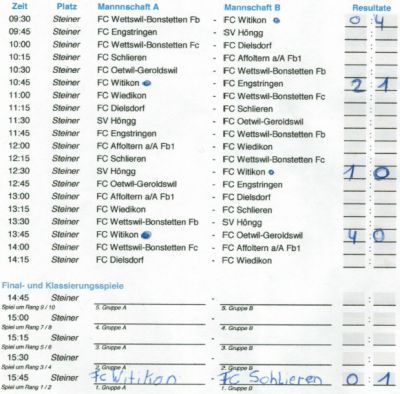 Zeit Platz Mannnschaft A Mannschaft B Resultate
09:30 Steiner FC Wettswil-Bonstetten Fb - FC Witikon 0 : 4
09:45 Steiner FC Engstringen - SV Höngg :
10:00 Steiner FC Wettswil-Bonstetten Fc - FC Dielsdorf :
10:15 Steiner FC Schlieren - FC Affoltern a/A Fb1 :
10:30 Steiner FC Oetwil-Geroldswil - FC Wettswil-Bonstetten Fb :
10:45 Steiner FC Witikon - FC Engstringen 2 : 1
11:00 Steiner FC Wiedikon - FC Wettswil-Bonstetten Fc :
11:15 Steiner FC Dielsdorf - FC Schlieren :
11:30 Steiner SV Höngg - FC Oetwil-Geroldswil :
11:45 Steiner FC Engstringen - FC Wettswil-Bonstetten Fb :
12:00 Steiner FC Affoltern a/A Fb1 - FC Wiedikon :
12:15 Steiner FC Schlieren - FC Wettswil-Bonstetten Fc :
12:30 Steiner SV Höngg - FC Witikon 1 : 0
12:45 Steiner FC Oetwil-Geroldswil - FC Engstringen :
13:00 Steiner FC Affoltern a/A Fb1 - FC Dielsdorf :
13:15 Steiner FC Wiedikon - FC Schlieren :
13:30 Steiner FC Wettswil-Bonstetten Fb - SV Höngg :
13:45 Steiner FC Witikon - FC Oetwil-Geroldswil 4 : 0
14:00 Steiner FC Wettswil-Bonstetten Fc - FC Affoltern a/A Fb1 :
14:15 Steiner FC Dielsdorf - FC Wiedikon :
Final- und Klassierungsspiele
14:45 Steiner - :
Spiel um Rang 9 / 10 5. Gruppe A 5. Gruppe B
15:00 Steiner - :
Spiel um Rang 7 / 8 4. Gruppe A 4. Gruppe B
15:15 Steiner - :
Spiel um Rang 5 / 6 3. Gruppe A 3. Gruppe B
15:30 Steiner - :
Spiel um Rang 3 / 4 2. Gruppe A 2. Gruppe B
15:45 Steiner Fc Witikon - FC Schlieren 0 : 1
Spiel um Rang 1 / 2 1. Gruppe A 1. Gruppe B